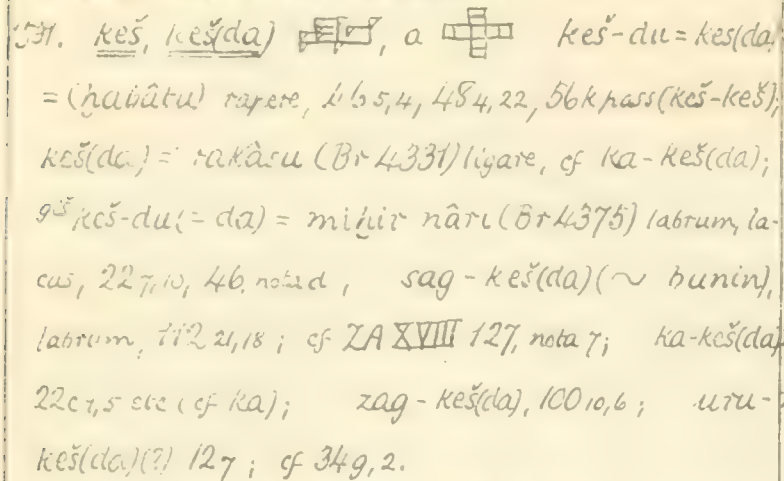 keš, keš(da) , a keš-du = keš(da)
= (ḫabâtu) rapere, 5,4, 484,22, 56k pass(keš-keš);
keš(da) = rakâsu (Br 4331) ligare, cf ka-keš(da);
giš keš-du(=da) = miḫir nâri (Br 4375) labrum, la-
cus, 227,10, 46, nota d, sag-keš(da) (~ bunin),
labrum, 112 21,18; cf ZA XVIII 127, nota 7; ka-keš(da)
22c 7,5 etc (cf ka); zag-keš(da), 100 10,6; uru-
keš(da)(?) 127; cf 349,2.